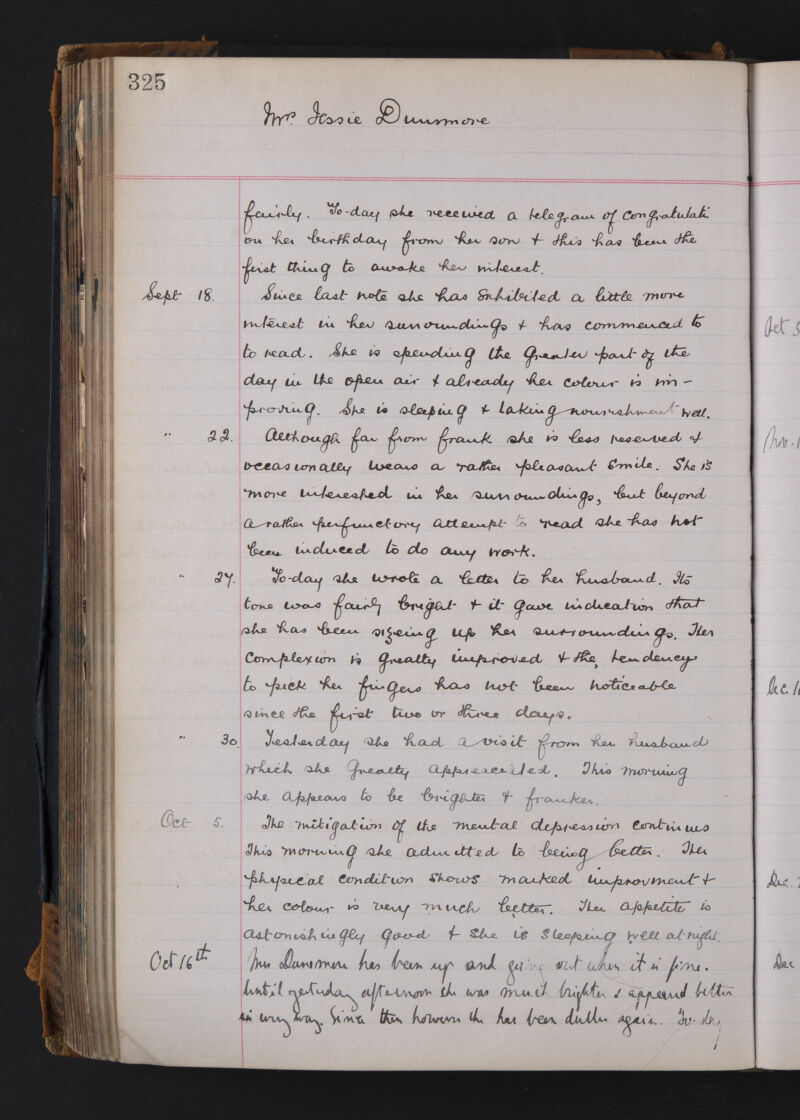 325
Mrs. Jessie Dunsmore
fairly. To-day she received a telegram of Congratulati
on her birthday from her son & this has been the
first thing to awake her interest.
Sept 18. Since last note she has Exhibited a little more
interest in her surroundings & has commenced to
to read. She is spending the Greater part of the
day in the open air & already her colour is im-
proving. She is sleeping & taking nourishment well.
" 22. Although far from frank she is less reserved &
occasionally wears a rather pleasant Smile. She is
more interested in her surroundings, but beyond
a rather perfunctory attempt to read she has not
been induced to do any work.
" 27. To-day she wrote a letter to her husband. Its
tone was fairly bright & it gave indication that
she has been sizeing up her surroundings. Her
Complexion is greatly improved & the tendency
to pick her fingers has not been noticeable
since the first two or three days.
" 30. Yesterday she had a visit from her husband
which she Greatly appreaceiated. This morning
she appears to be brighter & franker.
Oct 5. The mitigation of the mental depression continues
This morning she admitted to being better. Her
physical condition shows marked improvment &
her colour is very much better. Her appetite is
astonishingly good & she is sleeping well at night.
Oct 16th Mrs Dunsmore has been up and going out when it is fine.
Until yesterday afternoon she was much brighter & appeared better
in every way. Since then however she has been duller again. To-day
Oct 5
Nov. 1
Dec. 1
Dec.
Dec